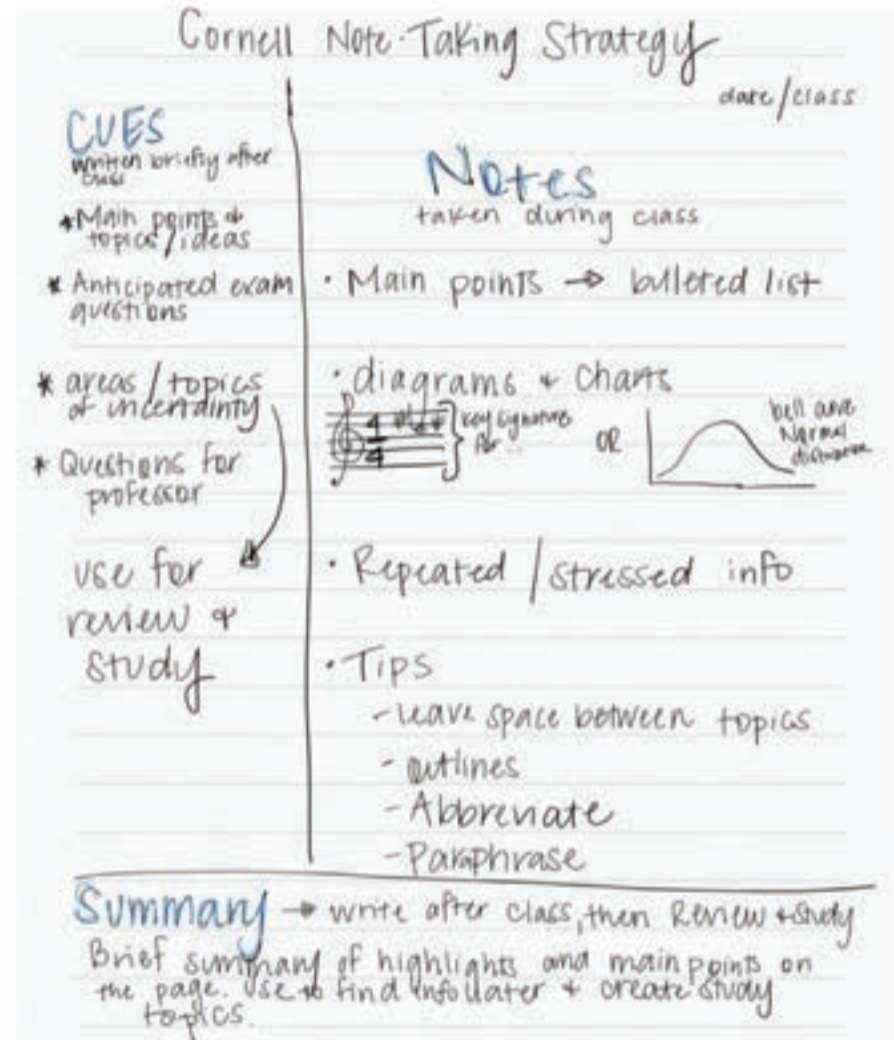 Cornell Note-Taking Strategy
date/class
CUES
written briefly after
class
*Main points +
topics/ideas
* Anticipated exam
questions
* areas/topics
of uncertainty
* Questions for
professor
use for
review +
study
Notes
taken during class
• Main points → bulleted list
• diagrams + charts
4
4
key signature
for
OR
bell curve
Normal
• Repeated/stressed info
• Tips
- leave space between topics
- outlines
- Abbreviate
- Paraphrase
Summary → write after class, then Review + study
Brief summary of highlights and main points on
the page. Use to find info later + create study
topics.